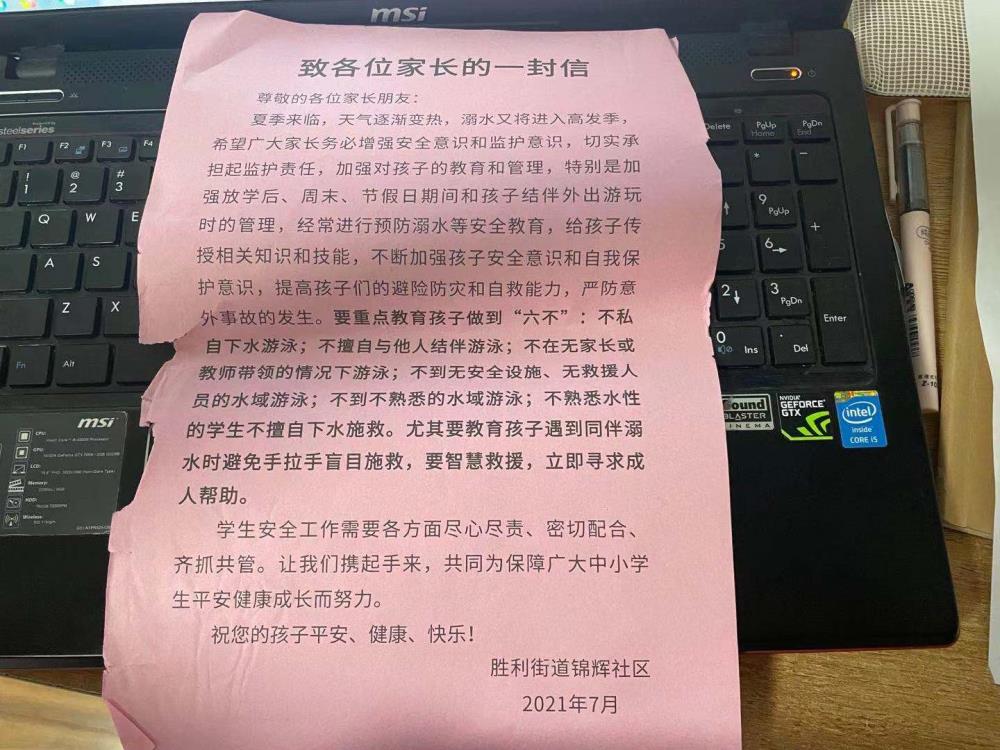 msi
steelseries
致各位家长的一封信
尊敬的各位家长朋友：
夏季来临，天气逐渐变热，溺水又将进入高发季，
希望广大家长务必增强安全意识和监护意识，切实承
担起监护责任，加强对孩子的教育和管理，特别是加
强放学后、周末、节假日期间和孩子结伴外出游玩
时的管理，经常进行预防溺水等安全教育，给孩子传
授相关知识和技能，不断加强孩子安全意识和自我保
护意识，提高孩子们的避险防灾和自救能力，严防意
外事故的发生。要重点教育孩子做到“六不”：不私
自下水游泳；不擅自与他人结伴游泳；不在无家长或
教师带领的情况下游泳；不到无安全设施、无救援人
员的水域游泳；不到不熟悉的水域游泳；不熟悉水性
的学生不擅自下水施救。尤其要教育孩子遇到同伴溺
水时避免手拉手盲目施救，要智慧救援，立即寻求成
人帮助。
学生安全工作需要各方面尽心尽责、密切配合、
齐抓共管。让我们携起手来，共同为保障广大中小学
生平安健康成长而努力。
祝您的孩子平安、健康、快乐！
胜利街道锦辉社区
2021年7月
F1 F2 F3 F4
! 1 @ 2 # 3
Q W E
A S
Z X
Fn Alt
Delete PgUp Home PgDn End
* -
9 PgUp +
6
2 3 PgDn Enter
0 Ins . Del
msi
CPU:
GPU:
LCD:
Memory:
HDD:
Wireless:
Sound
BLASTER
CINEMA
NVIDIA
GEFORCE
GTX
intel
inside
CORE i5